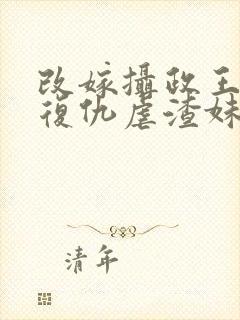 改嫁攝政王
復仇虐渣妹
清年